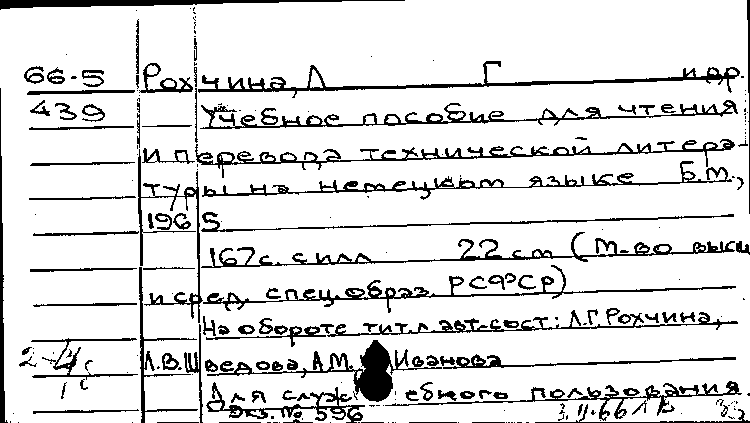 66-5 Рохчина, Л Г и др.
439 Учебное пособие для чтения
и перевода технической литера-
туры на немецком языке Б.М.,
1965
167с. с илл 22 см (М-во высш
и сред. спец. образ. РСФСР)
На обороте тит.л. авт.-сост: Л.Г. Рохчина,
Л.В. Шведова, А.М. Иванова
Для служебного пользования
Экз. № 596 3.II.66